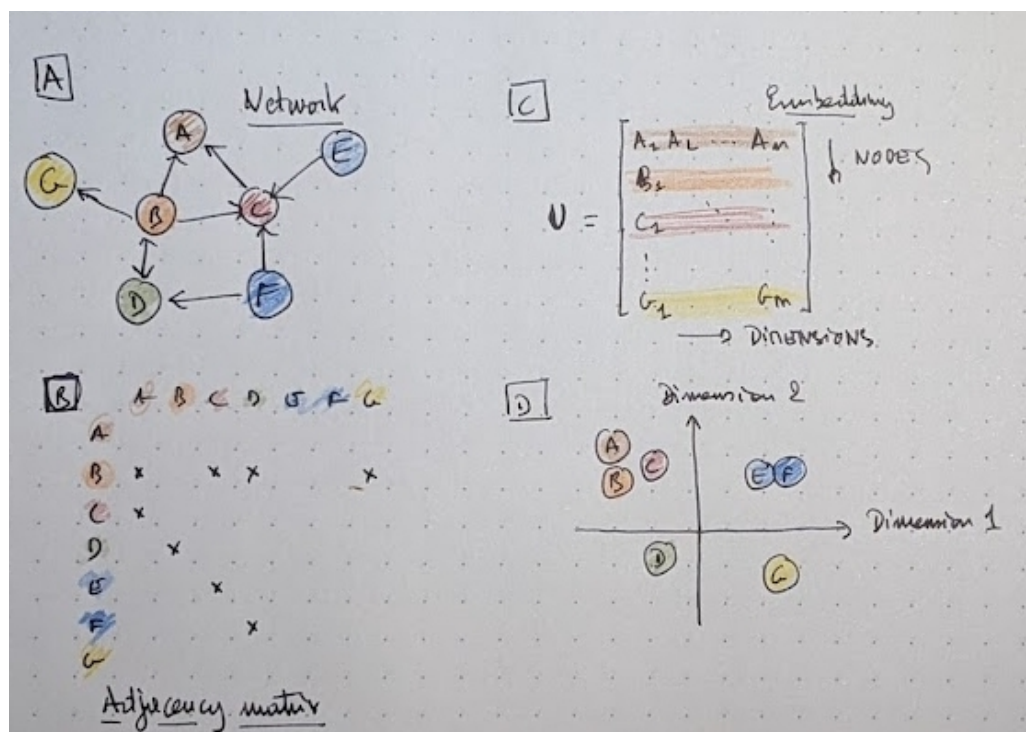 A
Network
A
E
G
B
C
D
F
B
A B C D E F G
A
B x x x x
C x
D x
E x
F x
G
Adjecency matrix
C
Embedding
A1 A2 ... An
B1
U =
C1
G1 Gm
NODES
DIMENSIONS
D
Dimension 2
A
B C
E F
Dimension 1
D
G